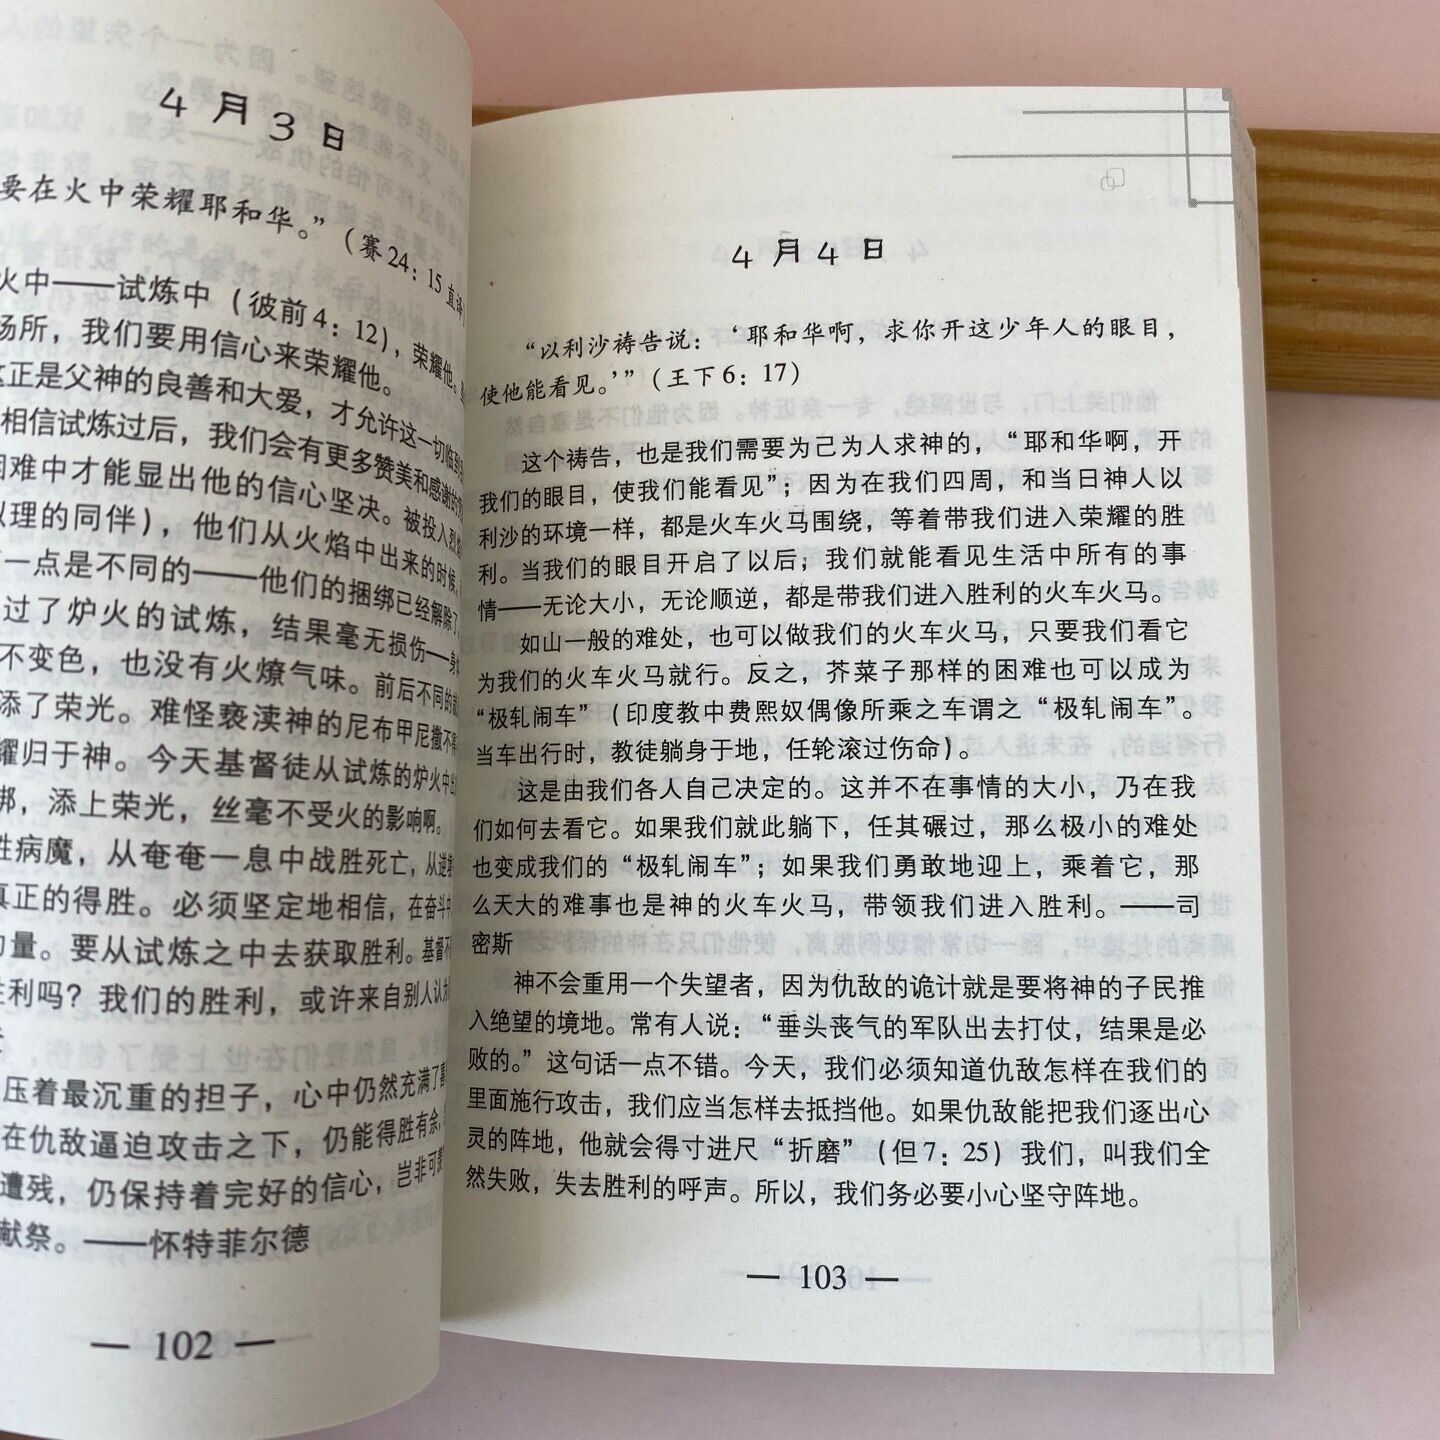 4月3日
要在火中荣耀耶和华。”（赛24：15直译
火中——试炼中（彼前4：12），荣耀他。
场所，我们要用信心来荣耀他。
这正是父神的良善和大爱，才允许这一切临到
相信试炼过后，我们会有更多赞美和感谢的
困难中才能显出他的信心坚决。被投入烈
以理的同伴），他们从火焰中出来的时候，
一点是不同的——他们的捆绑已经解除了。
过了炉火的试炼，结果毫无损伤——身
不变色，也没有火燎气味。前后不同的
添了荣光。难怪亵渎神的尼布甲尼撒不得
耀归于神。今天基督徒从试炼的炉火中出
绑，添上荣光，丝毫不受火的影响啊。
胜病魔，从奄奄一息中战胜死亡，从逆
真正的得胜。必须坚定地相信，在奋斗中
力量。要从试炼之中去获取胜利。基督
胜利吗？我们的胜利，或许来自别人认为
压着最沉重的担子，心中仍然充满了
在仇敌逼迫攻击之下，仍能得胜有余，
遭残，仍保持着完好的信心，岂非可
献祭。——怀特菲尔德
— 102 —
4月4日
“以利沙祷告说：‘耶和华啊，求你开这少年人的眼目，
使他能看见。’”（王下6：17）
这个祷告，也是我们需要为己为人求神的，“耶和华啊，开
我们的眼目，使我们能看见”；因为在我们四周，和当日神人以
利沙的环境一样，都是火车火马围绕，等着带我们进入荣耀的胜
利。当我们的眼目开启了以后，我们就能看见生活中所有的事
情——无论大小，无论顺逆，都是带我们进入胜利的火车火马。
如山一般的难处，也可以做我们的火车火马，只要我们看它
为我们的火车火马就行。反之，芥菜子那样的困难也可以成为
“极轧闹车”（印度教中费熙奴偶像所乘之车谓之“极轧闹车”。
当车出行时，教徒躺身于地，任轮滚过伤命）。
这是由我们各人自己决定的。这并不在事情的大小，乃在我
们如何去看它。如果我们就此躺下，任其碾过，那么极小的难处
也变成我们的“极轧闹车”；如果我们勇敢地迎上，乘着它，那
么天大的难事也是神的火车火马，带领我们进入胜利。——司
密斯
神不会重用一个失望者，因为仇敌的诡计就是要将神的子民推
入绝望的境地。常有人说：“垂头丧气的军队出去打仗，结果是必
败的。”这句话一点不错。今天，我们必须知道仇敌怎样在我们的
里面施行攻击，我们应当怎样去抵挡他。如果仇敌能把我们逐出心
灵的阵地，他就会得寸进尺“折磨”（但7：25）我们，叫我们全
然失败，失去胜利的呼声。所以，我们务必要小心坚守阵地。
— 103 —